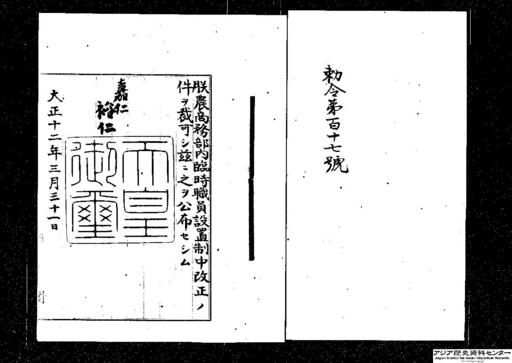 勅令第百十七號
朕農商務部内臨時職員設置制中改正ノ
件ヲ裁可シ茲ニ之ヲ公布セシム
嘉仁
裕仁
天皇
御璽
大正十二年三月三十一日
アジア歴史資料センター
Japan Center for Asian Historical Records